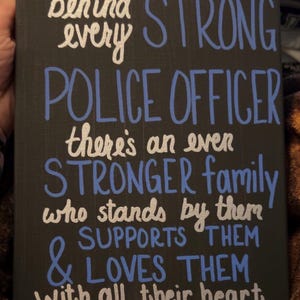 behind
every STRONG
POLICE OFFICER
there's an even
STRONGER family
who stands by them
SUPPORTS THEM
& LOVES THEM
with all their heart